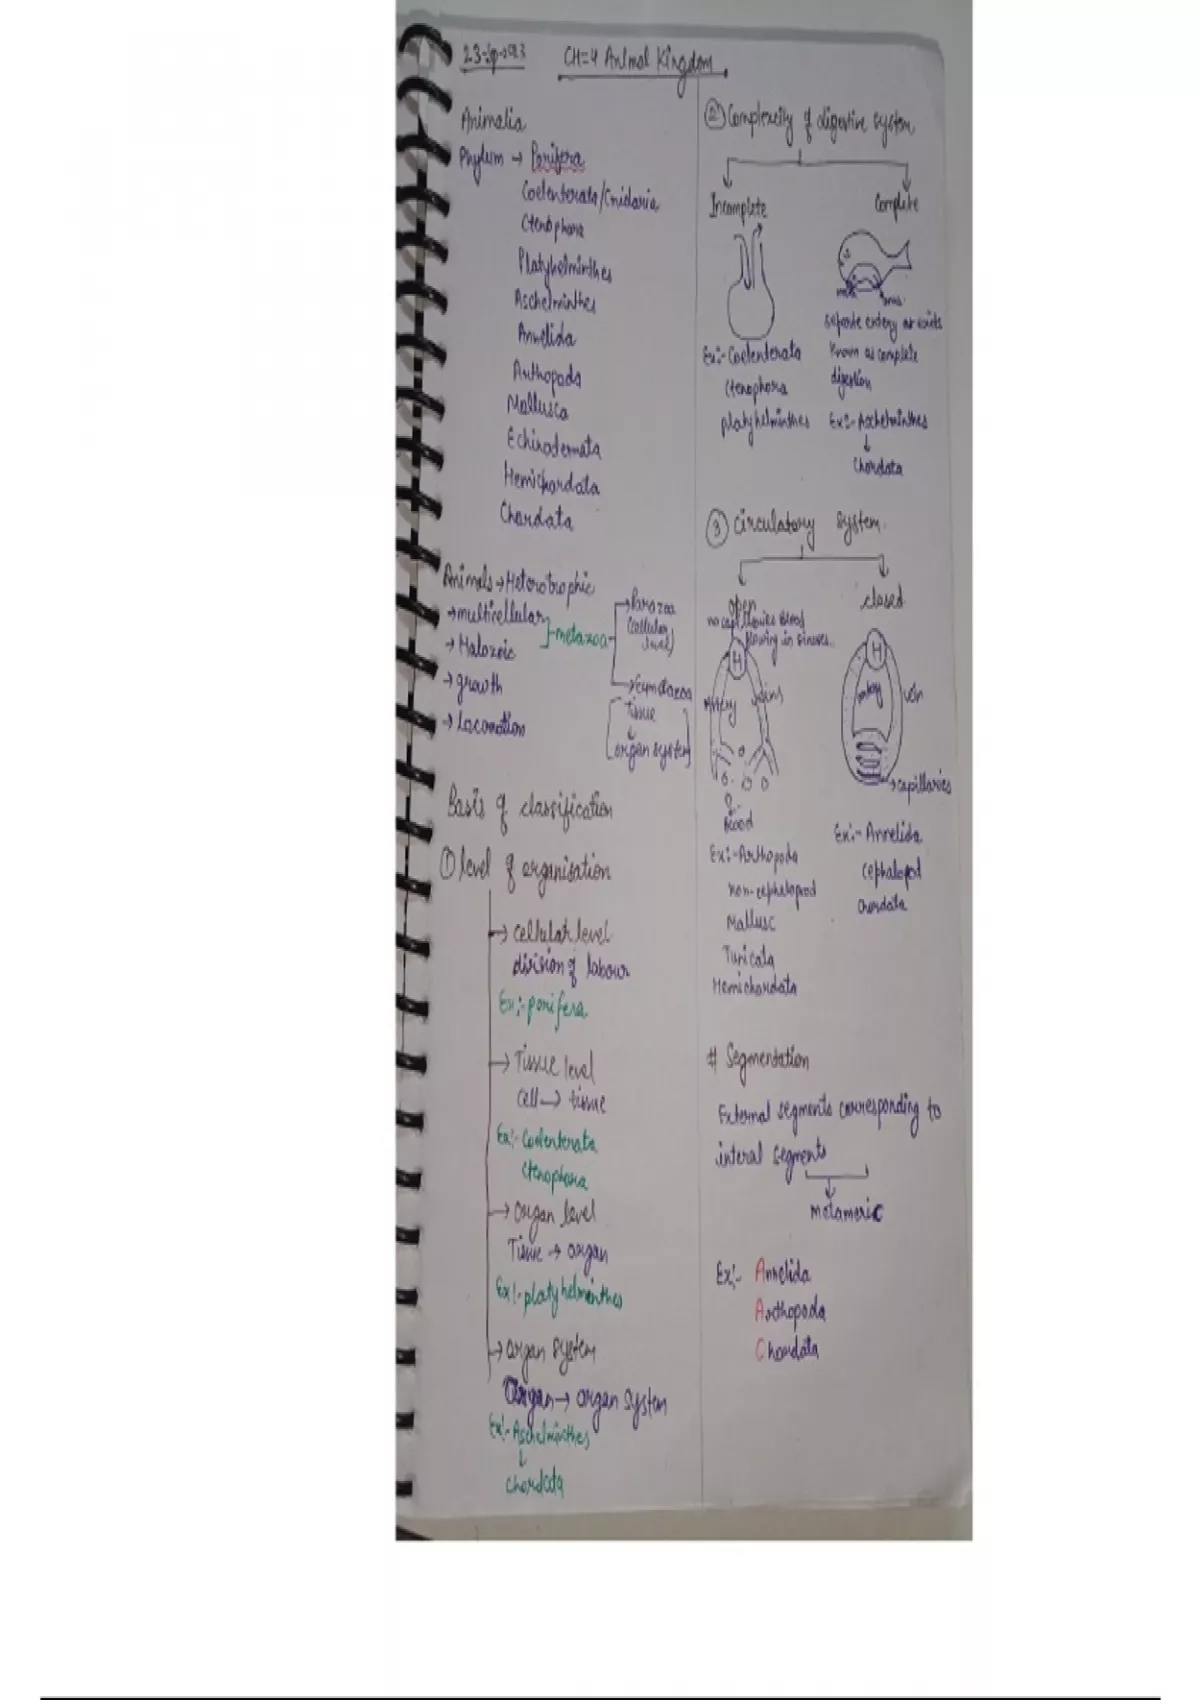 CH=4 Animal Kingdom
Animalia
Phylum → Porifera
Coelenterata/Cnidaria
Ctenophora
Platyhelminthes
Aschelminthes
Annelida
Arthopoda
Mollusca
Echinodermata
Hemichordata
Chordata
Animals → Heterotrophic
→ multicellular
→ Holozoic
→ growth
→ Locomotion
metazoa
→ Parazoa
(cellular
level)
→ Eumetazoa
Tissue
↓
organ system
Basis of classification
① level of organisation
→ cellular level
division of labour
Ex:- porifera
→ Tissue level
cell → tissue
Ex:- Coelenterata
Ctenophora
→ organ level
Tissue → organ
Ex:- platyhelminthes
→ organ system
Organ → organ system
Ex:- Aschelminthes
↓
Chordata
② Complexity of digestive system
Incomplete
Complete
Ex:- Coelenterata
Ctenophora
platyhelminthes
anus
known as complete
digestion
Ex:- Aschelminthes
↓
Chordata
③ circulatory system
open
closed
no capillaries blood
flowing in sinuses.
H
Artery
veins
Blood
Ex:- Arthopoda
non-cephalopod
Mallusc
Tunicata
Hemichordata
H
artery
vein
→ capillaries
Ex:- Annelida
cephalopod
Chordata
# Segmentation
External segments corresponding to
interal segments
metameric
Ex:- Annelida
Arthopoda
Chordata